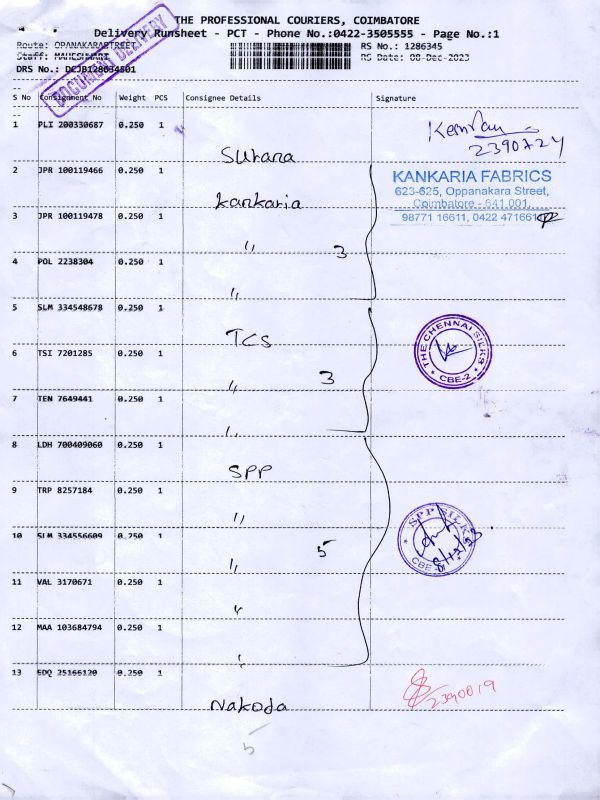 THE PROFESSIONAL COURIERS, COIMBATORE
Delivery Runsheet - PCT - Phone No.:0422-3505555 - Page No.:1
Route: OPANAKARASTREET
RS No.: 1286345
Staff: MAHESHWARI
RS Date: 08-Dec-2023
DRS No.: DCJB128634501
DOCUMENT DELIVERY
S No Consignment No Weight PCS Consignee Details Signature
1 PLI 200330687 0.250 1
Surana
2390724
2 JPR 100119466 0.250 1
Kankaria
KANKARIA FABRICS
623-625, Oppanakara Street,
Coimbatore - 641 001.
98771 16611, 0422 471661
3 JPR 100119478 0.250 1
" 3
4 POL 2238304 0.250 1
"
5 SLM 334548678 0.250 1
TCS
THE CHENNAI SILKS
CBE-2
6 TSI 7201285 0.250 1
" 3
7 TEN 7649441 0.250 1
"
8 LDH 700409060 0.250 1
SPP
9 TRP 8257184 0.250 1
"
SPP SILKS
10 SLM 334556609 0.250 1
" 5
11 VAL 3170671 0.250 1
"
12 MAA 103684794 0.250 1
"
13 EDQ 25166120 0.250 1
Nakoda
2390019
5